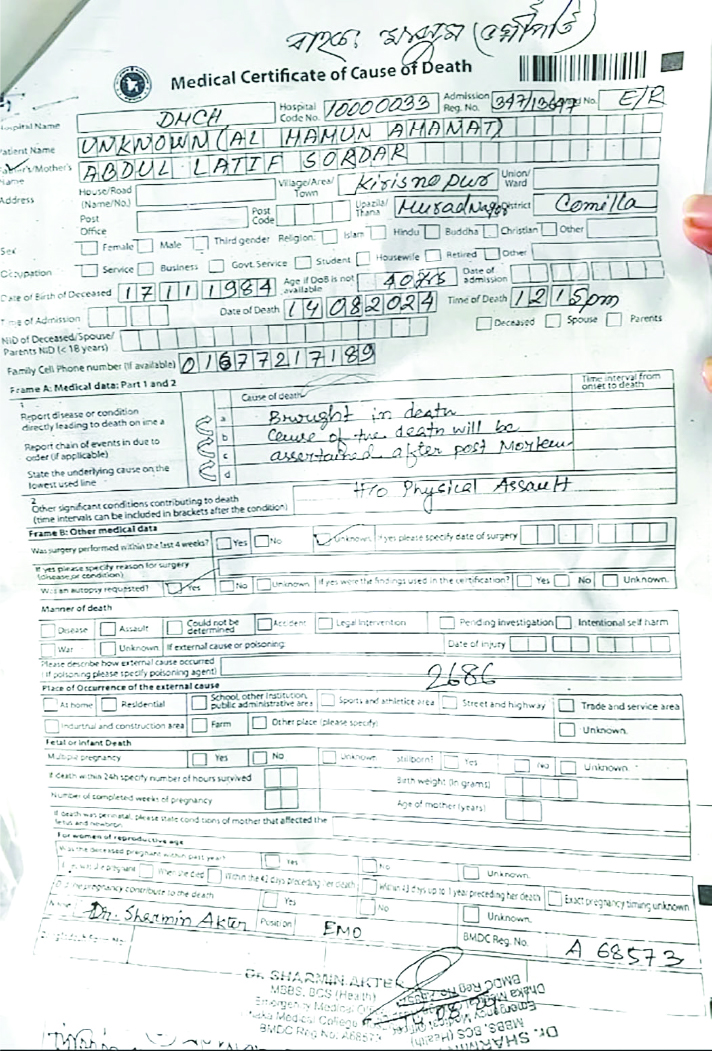 Medical Certificate of Cause of Death
Hospital Name DMCH Hospital Code No. 10000033 Admission Reg. No. E/R
Patient Name UNKNOWN (AL MAMUN AMANAT)
Father's/Mother's Name ABDUL LATIF SORDAR
Address House/Road (Name/No.) Village/Area/Town Kirisnopur Union/Ward
Post Office Post Code Upazila/Thana Muradnagor District Comilla
Sex Female Male Third gender Religion: Islam Hindu Buddha Christian Other
Occupation Service Business Govt. Service Student Housewife Retired Other
Date of Birth of Deceased 17111984 Age if DoB is not available 40yrs Date of admission
Time of Admission Date of Death 14082024 Time of Death 1215pm
NID of Deceased/Spouse/Parents NID (< 18 years) Deceased Spouse Parents
Family Cell Phone number (If available) 01677217189
Frame A: Medical data: Part 1 and 2
1 Cause of death Time interval from onset to death
Report disease or condition directly leading to death on line a
Report chain of events in due to order (if applicable)
State the underlying cause on the lowest used line
a Brought in death
b Cause of the death will be
c assertained after post Mortem
d
2 Other significant conditions contributing to death
(time intervals can be included in brackets after the condition)
H/o Physical Assault
Frame B: Other medical data
Was surgery performed within the last 4 weeks? Yes No Unknown If yes please specify date of surgery
If yes please specify reason for surgery (disease or condition)
Was an autopsy requested? Yes No Unknown If yes were the findings used in the certification? Yes No Unknown.
Manner of death
Disease Assault Could not be determined Accident Legal Intervention Pending investigation Intentional self harm
War Unknown If external cause or poisoning Date of injury
Please describe how external cause occurred
(If poisoning please specify poisoning agent)
2686
Place of Occurrence of the external cause
At home Residential School, other Institution, public administrative area Sports and athletics area Street and highway Trade and service area
Industrial and construction area Farm Other place (please specify) Unknown.
Fetal or infant Death
Multiple pregnancy Yes No Unknown Stillborn? Yes No Unknown.
If death within 24h specify number of hours survived Birth weight (in grams)
Number of completed weeks of pregnancy Age of mother (years)
If death was perinatal, please state conditions of mother that affected the fetus and newborn
For women of reproductive age
Was the deceased pregnant within past year? Yes No Unknown.
When she died Within the 42 days preceding her death Within 43 days up to 1 year preceding her death Exact pregnancy timing unknown
Did the pregnancy contribute to the death Yes No Unknown.
Name Dr. Sharmin Akter Position EMO BMDC Reg. No. A 68573
Dr. SHARMIN AKTER
MBBS, BCS (Health)
Emergency Medical
Dhaka Medical College
BMDC Reg No. A68573